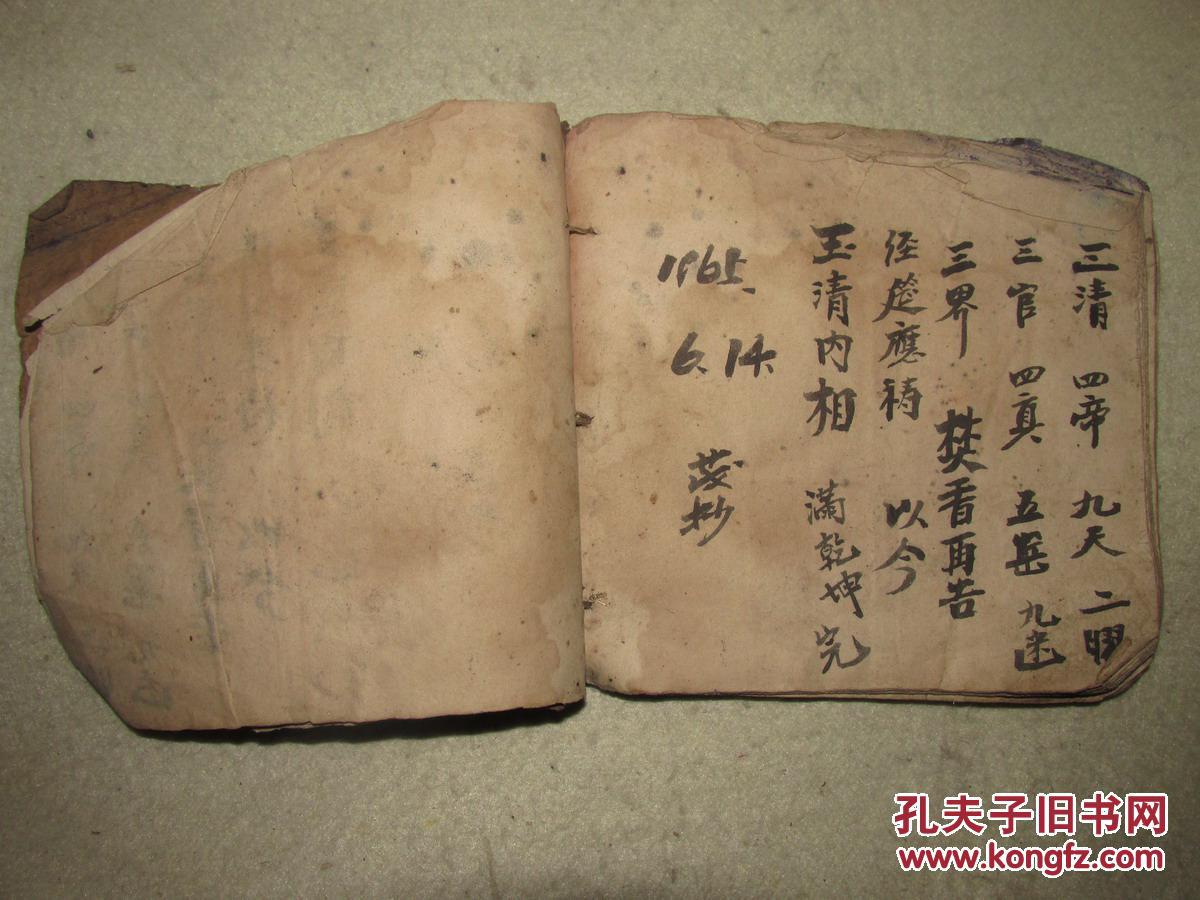 三清 四帝 九天 二曜
三官 四真 五岳 九
三界 焚香再告
径 應祷 以今
玉清内相 满乾坤完
1965.
6.14.
茂抄
孔夫子旧书网
www.kongfz.com